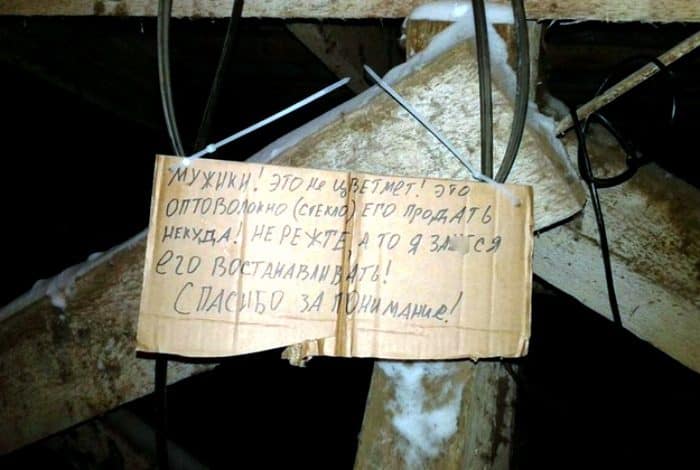 МУЖИКИ! ЭТО НЕ ЦВЕТМЕТ! ЭТО
ОПТОВОЛОКНО (СТЕКЛО) ЕГО ПРОДАТЬ
НЕКУДА! НЕ РЕЖТЕ А ТО Я
ЕГО ВОСТАНАВЛИВАТЬ!
СПАСИБО ЗА ПОНИМАНИЕ!